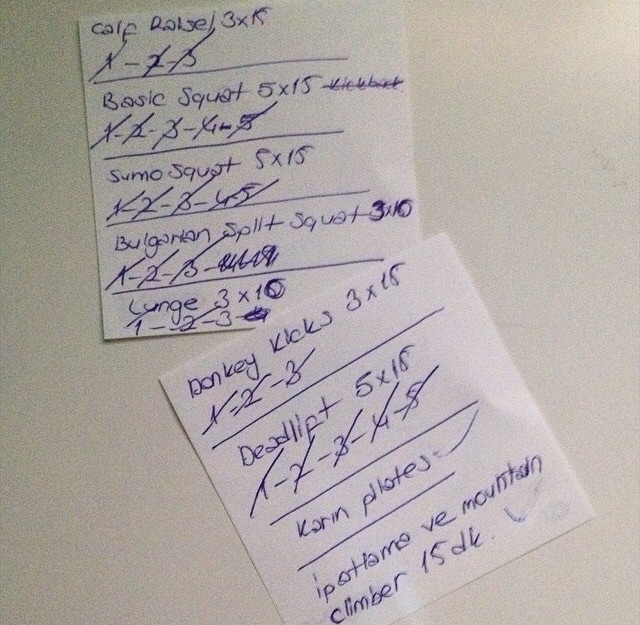 Calf Raise 3x15
1-2-3
Basic Squat 5x15
1-2-3-4-5
Sumo Squat 5x15
1-2-3-4-5
Bulgarian Split Squat 3x10
1-2-3
Lunge 3x10
1-2-3
Donkey Kicks 3x15
1-2-3
Deadlift 5x15
1-2-3-4-5
Karın pilates
İp atlama ve mountain
climber 15 dk.